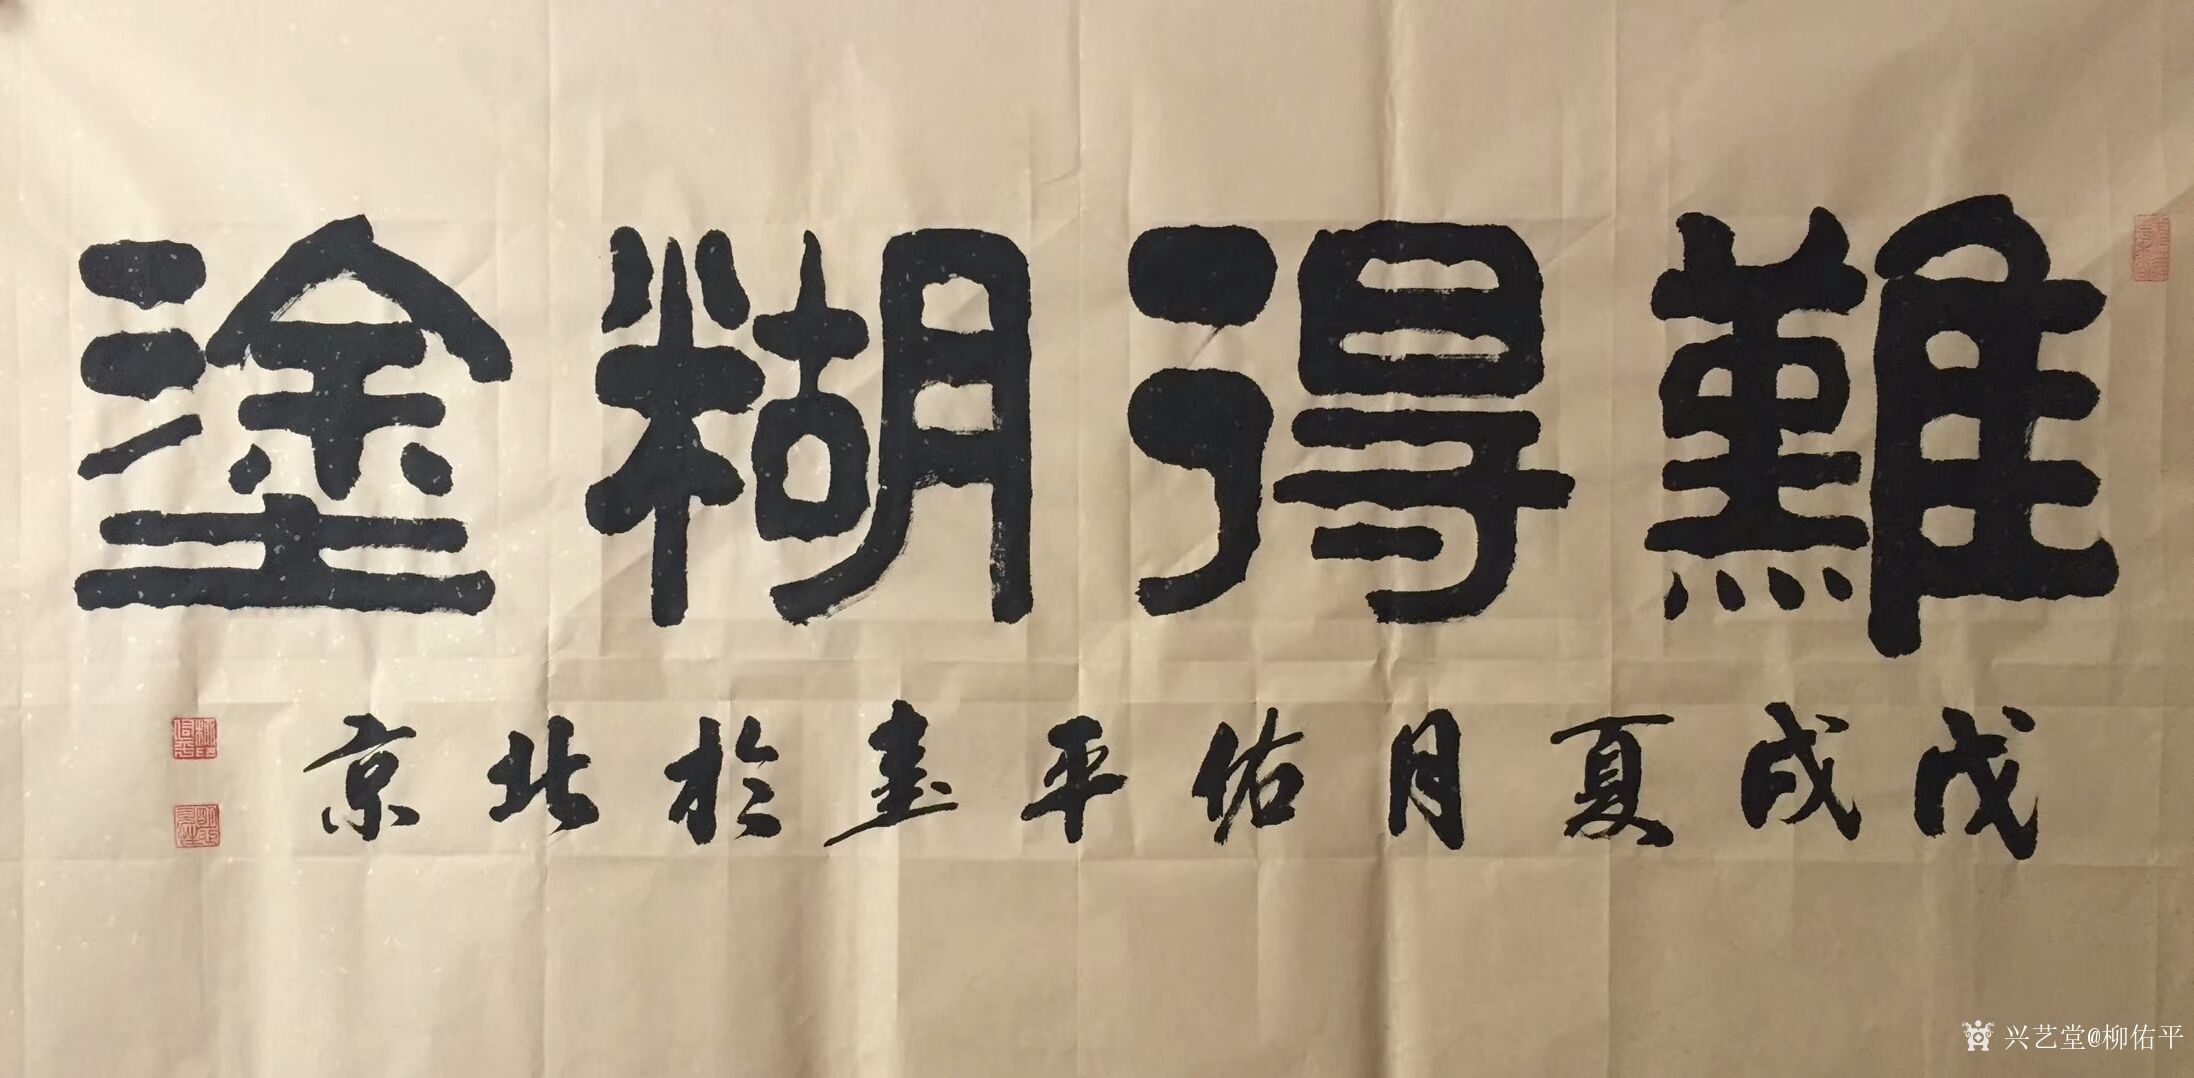 難得糊塗
戊戌夏月佑平書於北京
兴艺堂@柳佑平